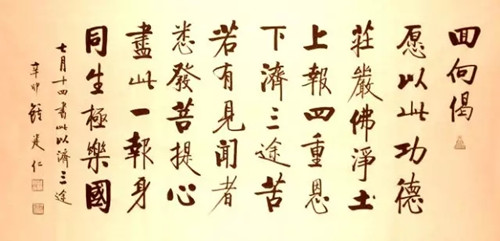 回向偈
愿以此功德
莊嚴佛淨土
上報四重恩
下濟三途苦
若有見聞者
悉發菩提心
盡此一報身
同生極樂國
七月十四書此以濟三途
辛卯 建仁